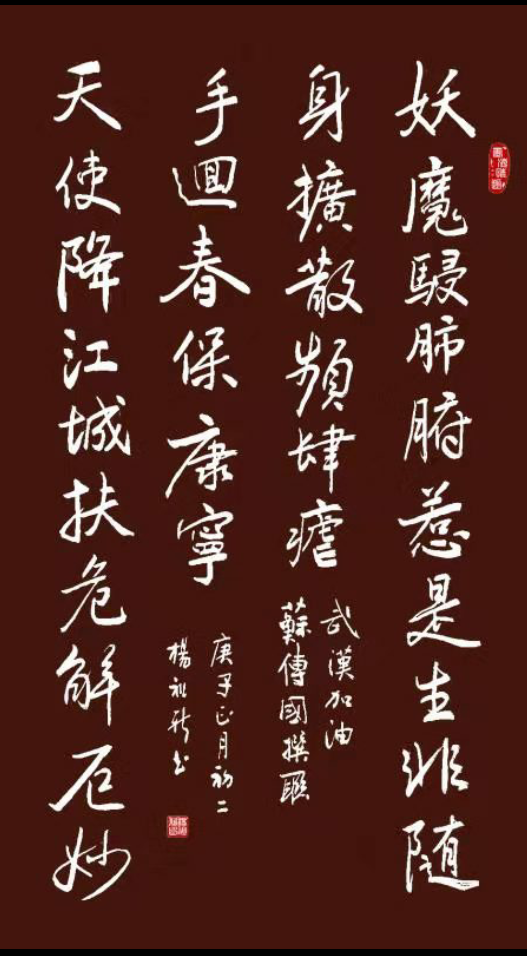 妖魔駸肺腑惹是生非随
身擴散頻肆瘧
武漢加油
蘇傳國撰聯
天使降江城扶危解厄妙
手迴春保康寧
庚子正月初二
楊